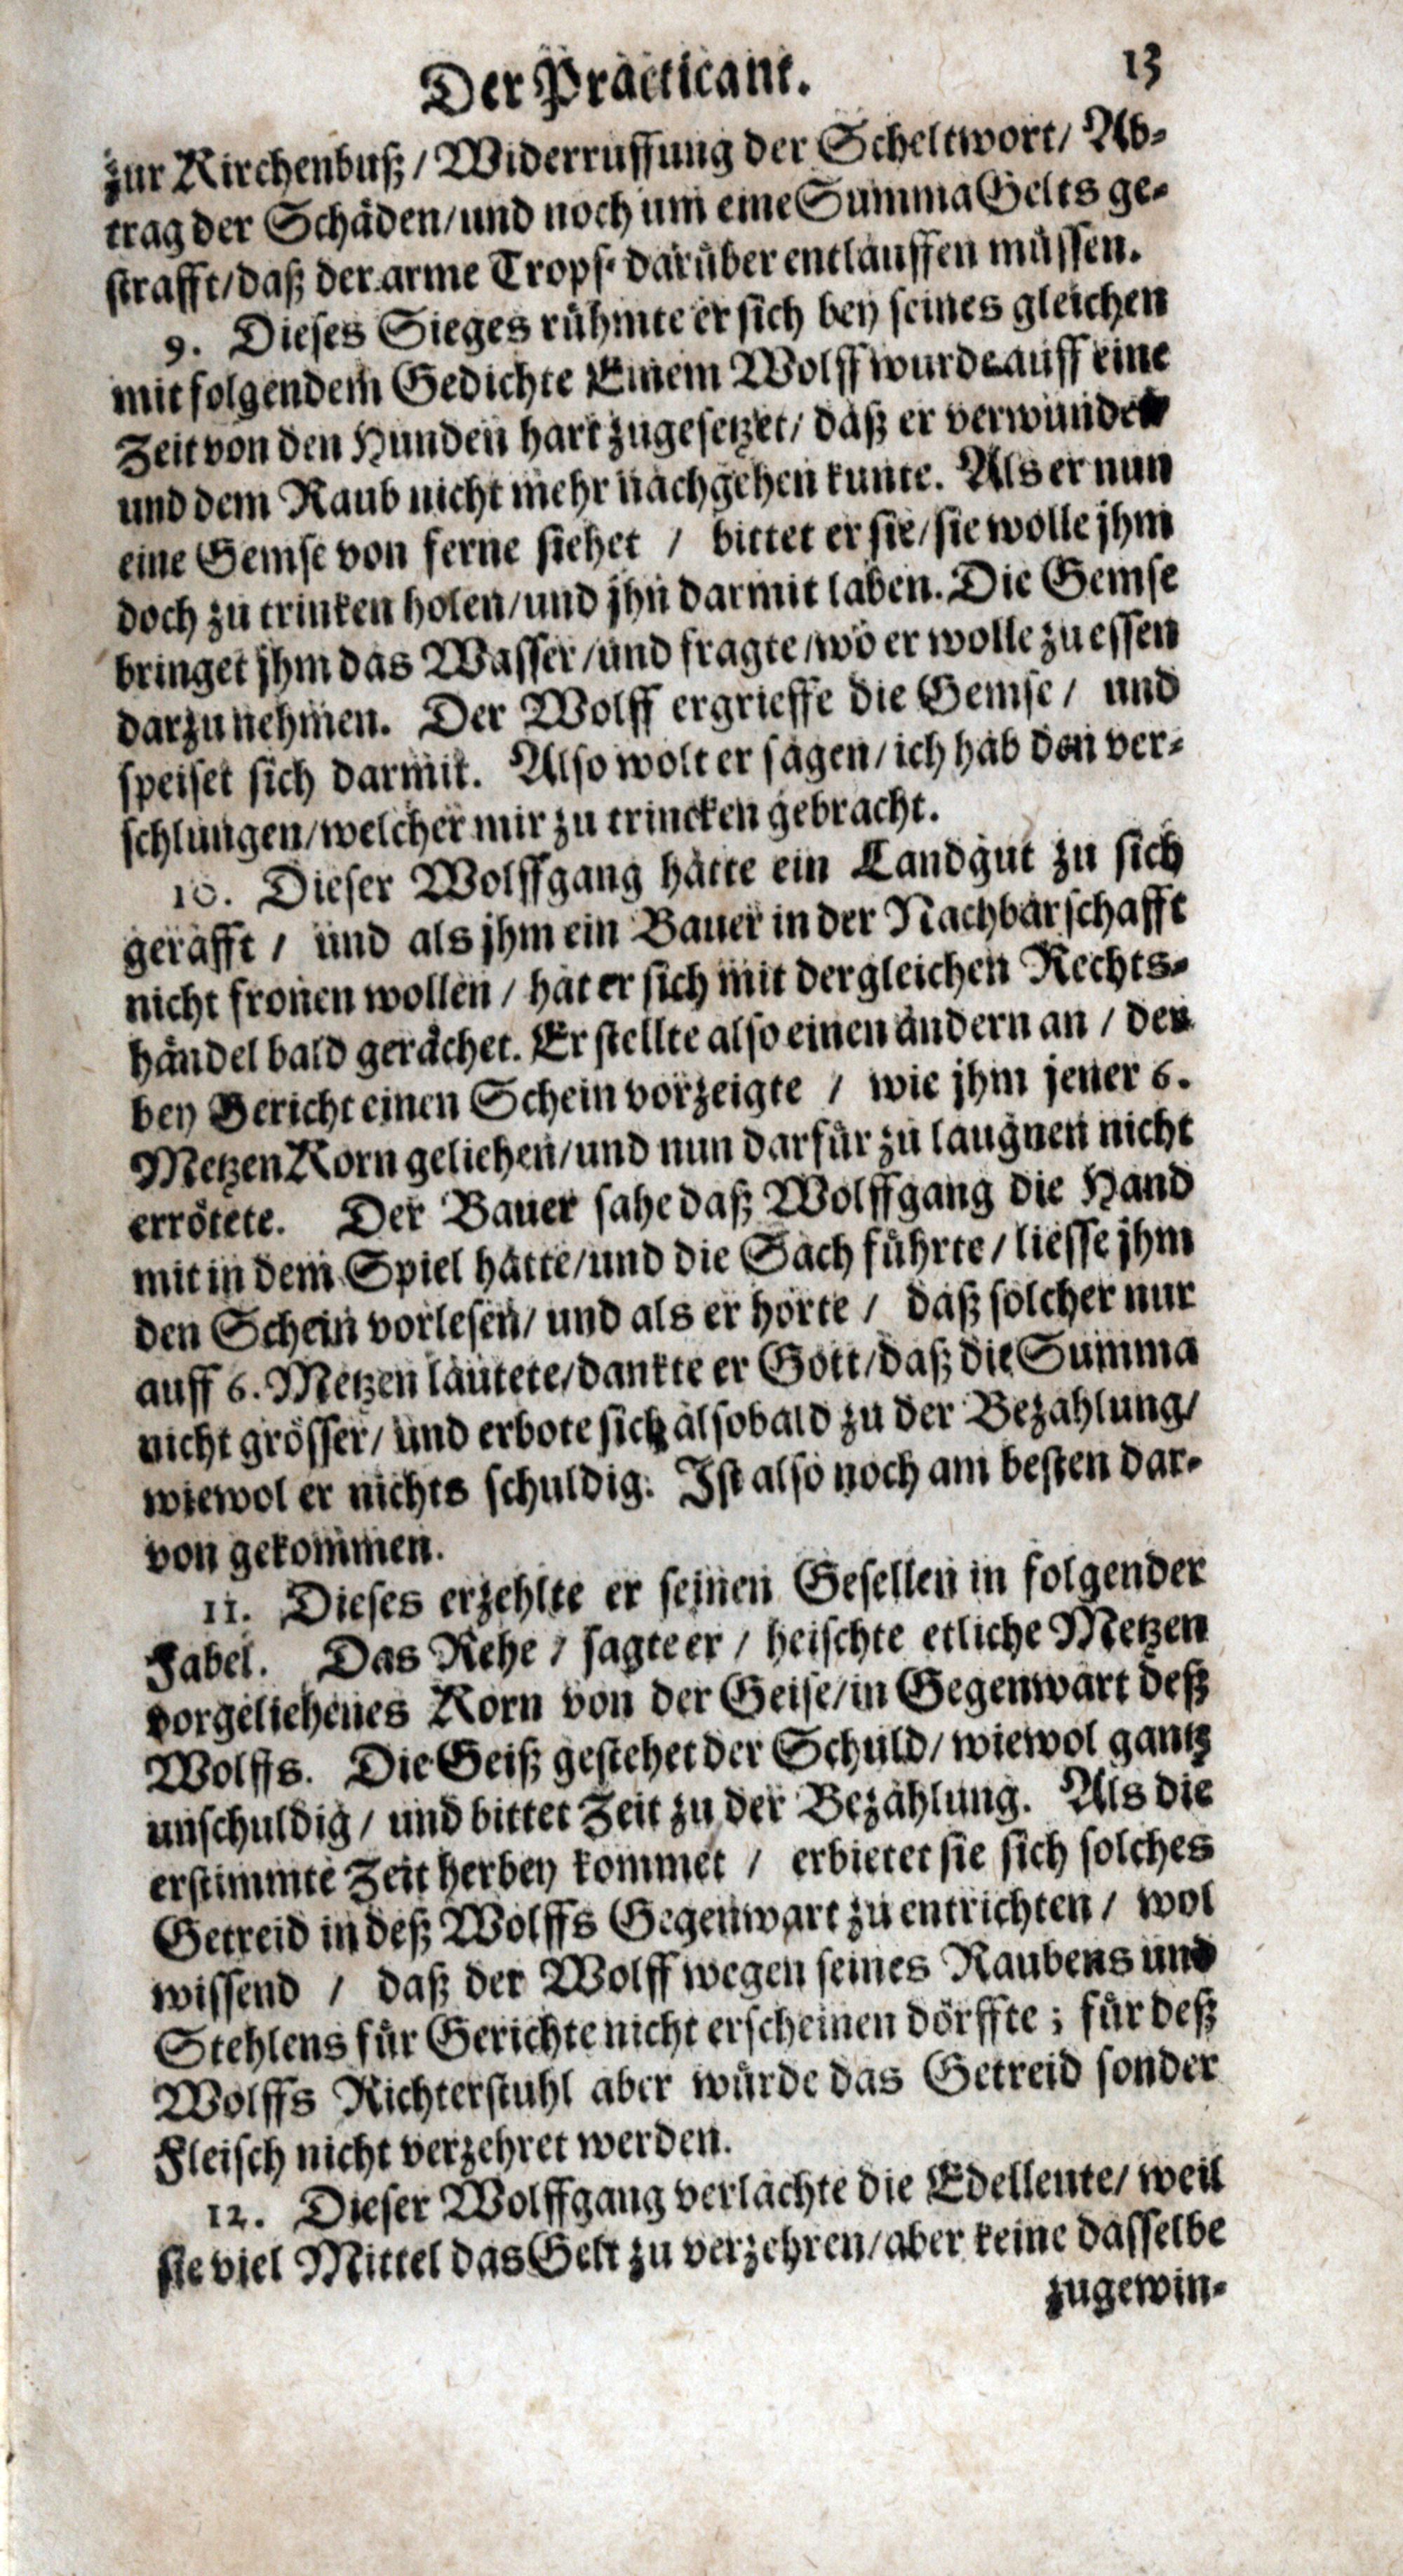 Der Practicant. 13
zur Kirchenbuß / Widerruffung der Scheltwort / Ab-
trag der Schäden / und noch um eine Summa Gelts ge-
strafft / daß der arme Tropf darüber entlauffen müssen.
9. Dieses Sieges rühmte er sich bey seines gleichen
mit folgendem Gedichte Einem Wolff wurde auff eine
Zeit von den Hunden hart zugesetzet / daß er verwundet
und dem Raub nicht mehr nachgehen kunte. Als er nun
eine Gemse von ferne siehet / bittet er sie / sie wolle jhm
doch zu trinken holen / und jhn darmit laben. Die Gemse
bringet jhm das Wasser / und fragte / wo er wolle zu essen
darzu nehmen. Der Wolff ergrieffe die Gemse / und
speiset sich darmit. Also wolt er sagen / ich hab den ver-
schlungen / welcher mir zu trincken gebracht.
10. Dieser Wolffgang hatte ein Landgut zu sich
gerafft / und als jhm ein Bauer in der Nachbarschafft
nicht fronen wollen / hat er sich mit dergleichen Rechts-
händel bald gerächet. Er stellte also einen andern an / der
bey Gericht einen Schein vorzeigte / wie jhm jener 6.
Metzen Korn geliehen / und nun darfür zu laugnen nicht
errötete. Der Bauer sahe daß Wolffgang die Hand
mit in dem Spiel hatte / und die Sach führte / liesse jhm
den Schein vorlesen / und als er horte / daß solcher nur
auff 6. Metzen lautete / dankte er Gott / daß die Summa
nicht grösser / und erbote sich alsobald zu der Bezahlung /
wiewol er nichts schuldig: Ist also noch am besten dar-
von gekommen.
11. Dieses erzehlte er seinen Gesellen in folgender
Fabel. Das Rehe / sagte er / heischte etliche Metzen
vorgeliehenes Korn von der Geise / in Gegenwart deß
Wolffs. Die Geiß gestehet der Schuld / wiewol gantz
unschuldig / und bittet Zeit zu der Bezahlung. Als die
erstimmte Zeit herbey kommet / erbietet sie sich solches
Getreid in deß Wolffs Gegenwart zu entrichten / wol
wissend / daß der Wolff wegen seines Raubens und
Stehlens für Gerichte nicht erscheinen dörffte; für deß
Wolffs Richterstuhl aber würde das Getreid sonder
Fleisch nicht verzehret werden.
12. Dieser Wolffgang verlachte die Edelleute / weil
sie viel Mittel das Gelt zu verzehren / aber keine dasselbe
zugewin-